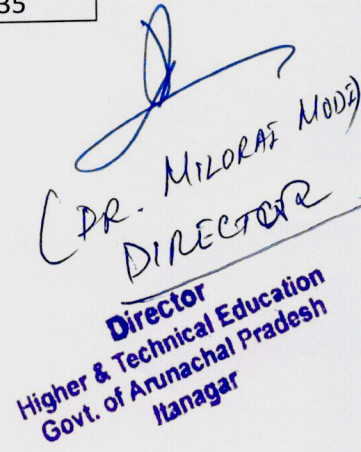 35
(DR. MILORAI MODI)
DIRECTOR
Director
Higher & Technical Education
Govt. of Arunachal Pradesh
Itanagar